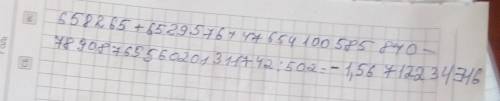 658265+6529576747654100585840-
7890876555602013117742:502=-1,56712234716